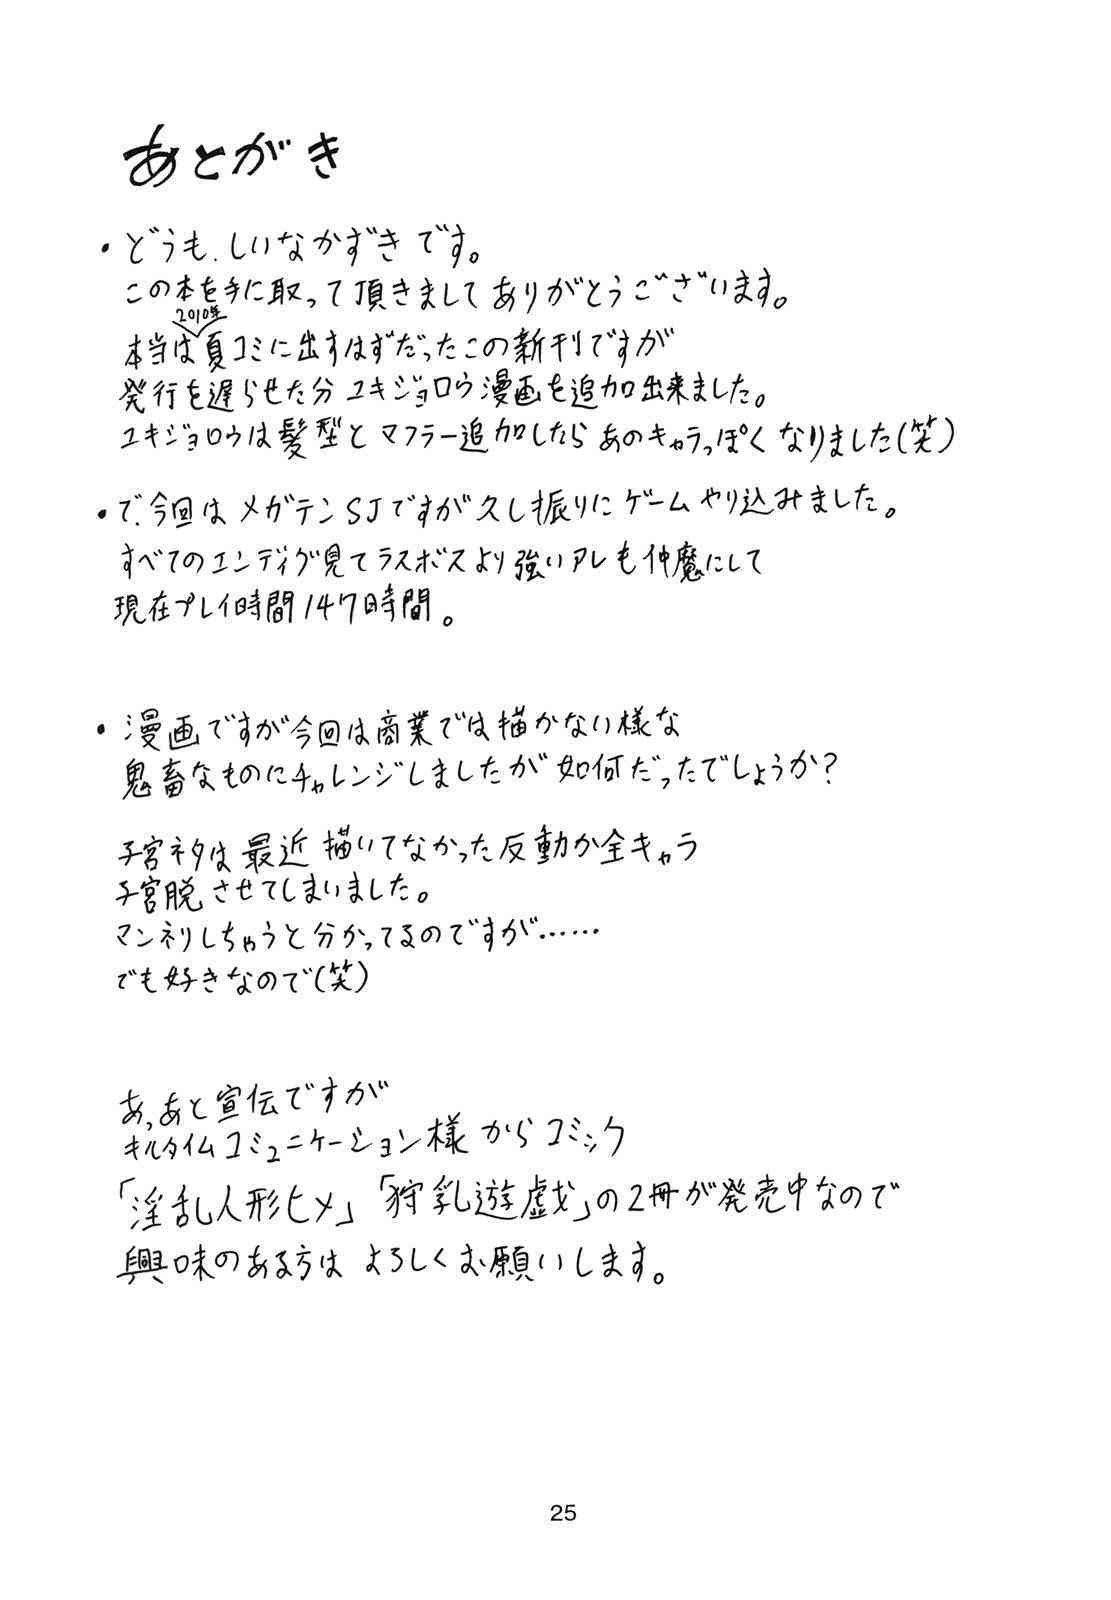 あとがき
・どうも、しいなかずきです。
この本を手に取って頂きましてありがとうございます。
2010年
本当は夏コミに出すはずだったこの新刊ですが
発行を遅らせた分ユキジョロウ漫画を追加出来ました。
ユキジョロウは髪型とマフラー追加したらあのキャラっぽくなりました(笑)
・で、今回はメガテンSJですが久し振りにゲームやり込みました。
すべてのエンディグ見てラスボスより強いアレも仲魔にして
現在プレイ時間147時間。
・漫画ですが今回は商業では描かない様な
鬼畜なものにチャレンジしましたが如何だったでしょうか?
子宮ネタは最近描いてなかった反動か全キャラ
子宮脱させてしまいました。
マンネリしちゃうと分かってるのですが……
でも好きなので(笑)
あ、あと宣伝ですが
キルタイムコミュニケーション様からコミック
「淫乱人形ヒメ」「狩乳遊戯」の2冊が発売中なので
興味のある方はよろしくお願いします。
25